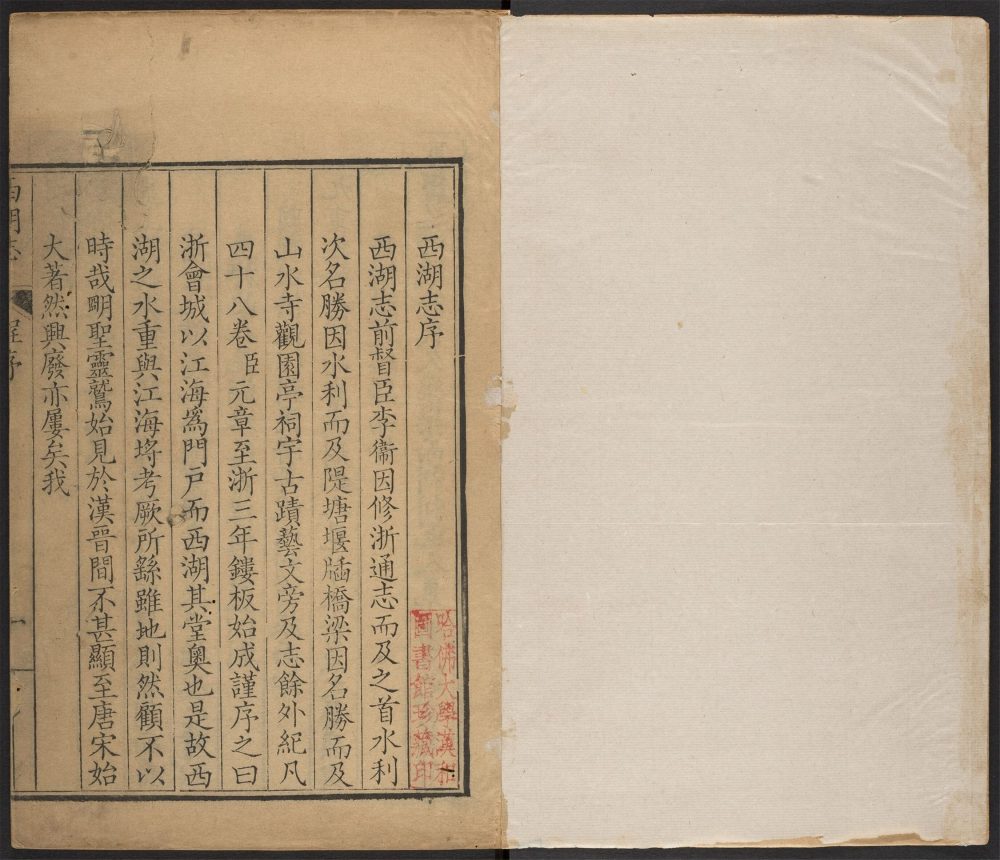 西湖志序
西湖志前督臣李衞因修浙通志而及之首水利
次名勝因水利而及隄塘堰牐橋梁因名勝而及
山水寺觀園亭祠宇古蹟藝文旁及志餘外紀凡
四十八卷臣元章至浙三年鏤板始成謹序之曰
浙會城以江海爲門戸而西湖其堂奧也是故西
湖之水重與江海埓考厥所繇雖地則然顧不以
時哉明聖靈鷲始見於漢晉間不甚顯至唐宋始
大著然興廢亦屢矣我
西湖志
程序
一
哈佛大學漢和
圖書館珍藏印